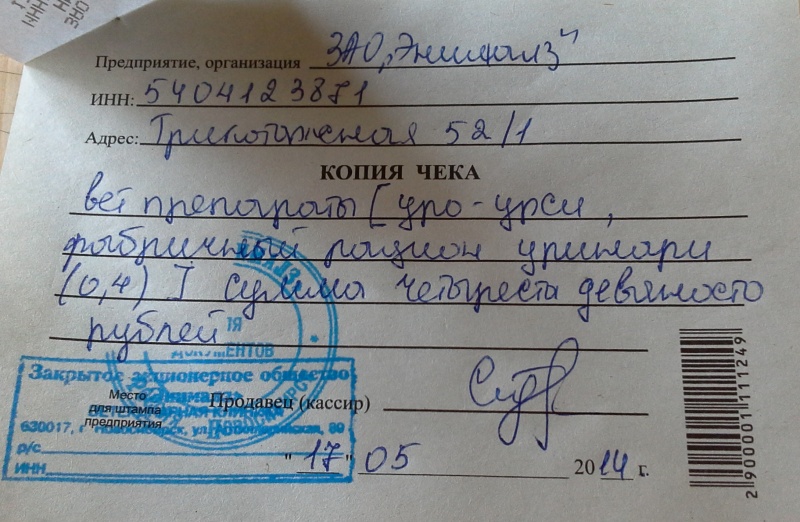 Предприятие, организация ЗАО „Энималз"
ИНН: 5404123871
Адрес: Трикотажная 52/1
КОПИЯ ЧЕКА
вет препараты [уро-урси,
фабричный рацион уринари
(0,4)] сумма четыреста девяносто
рублей
ДОКУМЕНТОВ
Закрытое акционерное общество
Место
для штампа
предприятия
Продавец (кассир)
630017, г. Новосибирск, ул.
р/с
ИНН
"17" 05 2014 г.
2 900001 111249